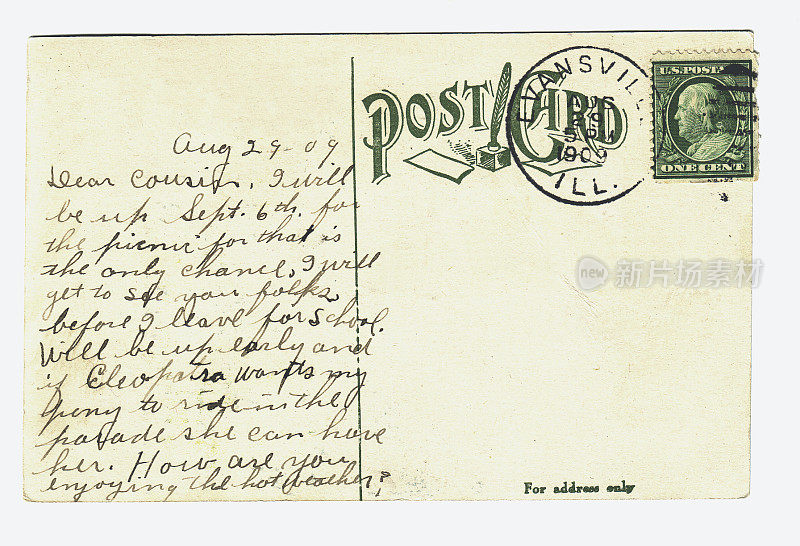 POST CARD
EVANSVILLE
AUG
29
5 PM
1909
ILL.
U.S. POST
ONE CENT
Aug 29-09
Dear Cousin, I will
be up Sept. 6th. for
the picnic for that is
the only chance, I will
get to see you folks
before I leave for school.
Will be up early and
if Cleopatra wants my
pony to ride in the
parade she can have
her. How are you
enjoying the hot weather?
For address only
new 新片场素材